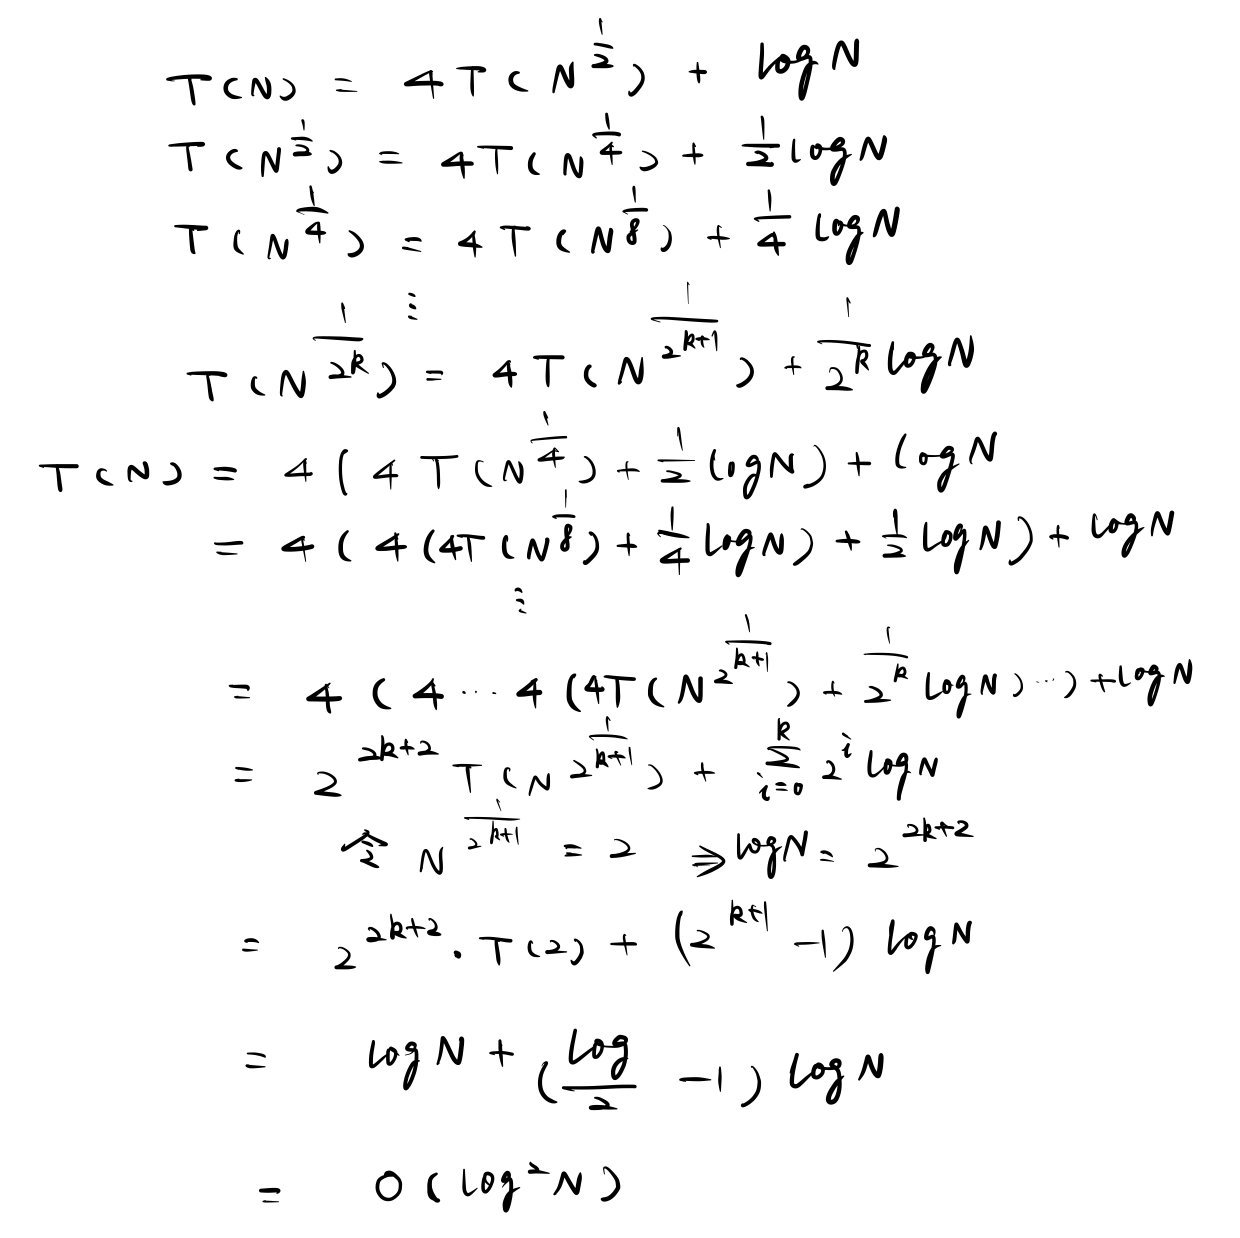 T(N) = 4T(N^{\frac{1}{2}}) + log N
T(N^{\frac{1}{2}}) = 4T(N^{\frac{1}{4}}) + \frac{1}{2} log N
T(N^{\frac{1}{4}}) = 4T(N^{\frac{1}{8}}) + \frac{1}{4} log N
⋮
T(N^{\frac{1}{2^k}}) = 4T(N^{\frac{1}{2^{k+1}}}) + \frac{1}{2^k} log N
T(N) = 4(4T(N^{\frac{1}{4}}) + \frac{1}{2} log N) + log N
= 4(4(4T(N^{\frac{1}{8}}) + \frac{1}{4} log N) + \frac{1}{2} log N) + log N
⋮
= 4(4 ⋯ 4(4T(N^{\frac{1}{2^{k+1}}}) + \frac{1}{2^k} log N) ⋯) + log N
= 2^{2k+2} T(N^{\frac{1}{2^{k+1}}}) + \sum_{i=0}^{k} 2^i log N
令 N^{\frac{1}{2^{k+1}}} = 2 ⇒ log N = 2^{2k+2}
= 2^{2k+2} · T(2) + (2^{k+1} - 1) log N
= log N + (\frac{log}{2} - 1) log N
= O(log^2 N)